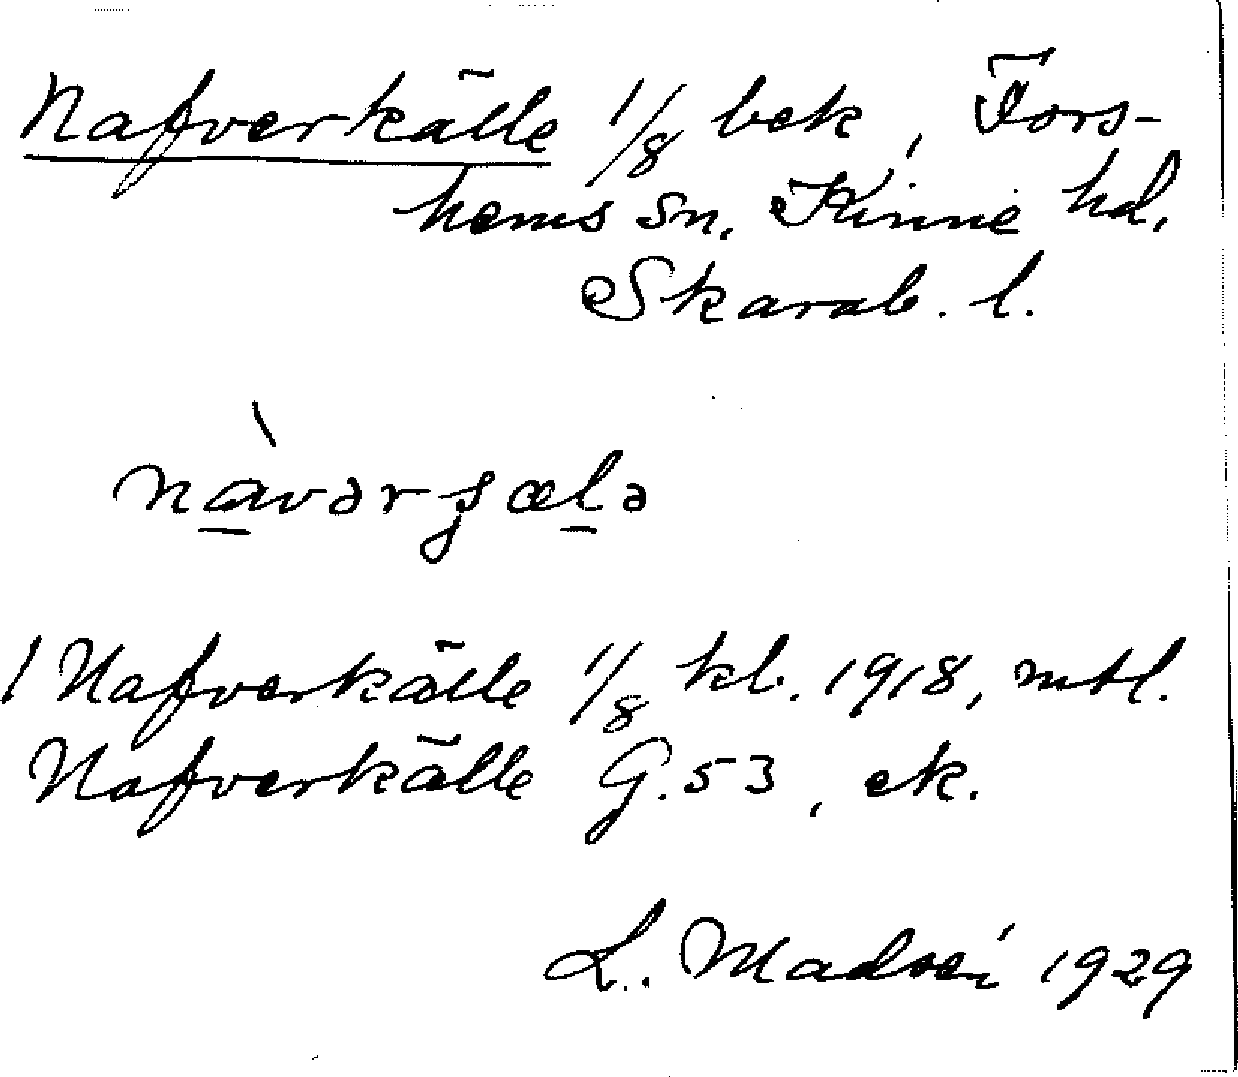 Nafverkälle 1/8 bek, Fors-
hems sn. Kinne hd.
Skarab. l.
nàvərʂælə
1 Nafverkälle 1/8 kb. 1918, mtl.
Nafverkälle G.53, ek.
L. 1929